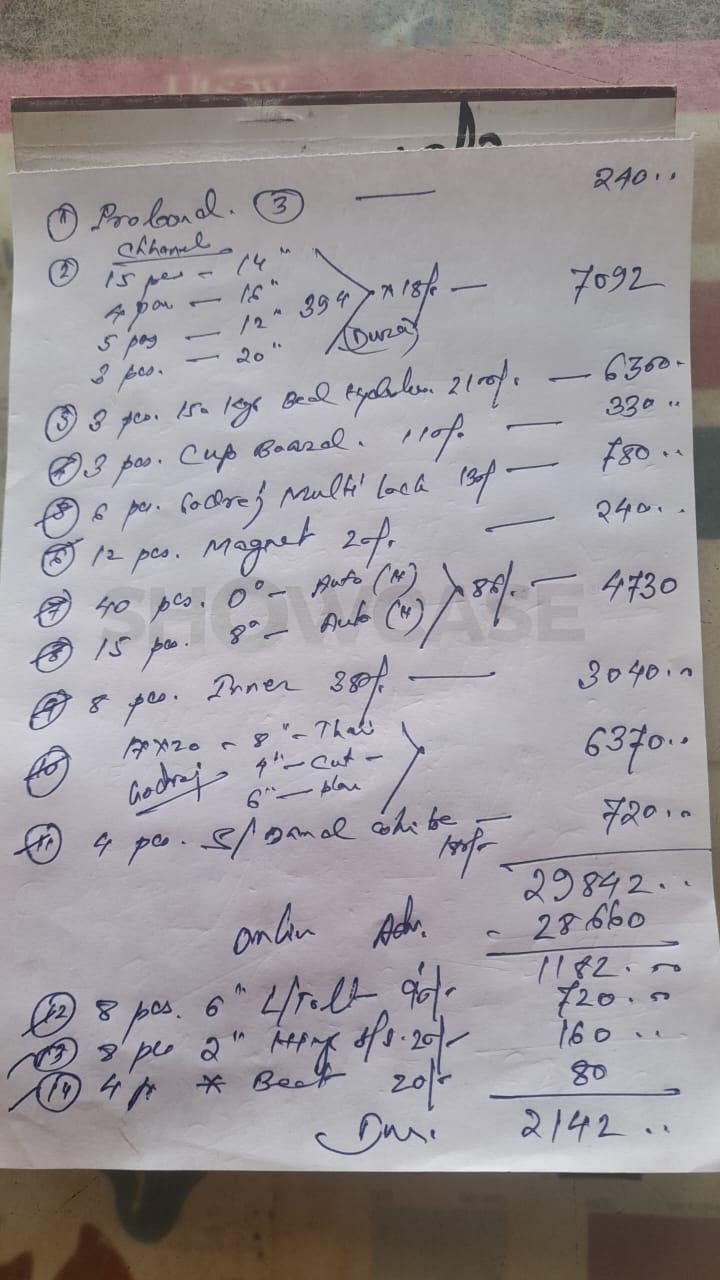 ① Probond. ③ — 240..
Chhannel
② 15 pcs - 14"
4 pcs — 16"
5 pcs — 12" 394 × 18/- — 7092
3 pcs. — 20" (Dura)
③ 3 pcs. 150 kgs Bed Hydrolic 2100/- — 6300-
④ 3 pcs. Cup Board. 110/- — 330..
⑤ 6 pcs. Godrej Multi Lock 130/- — 780..
⑥ 12 pcs. Magnet 20/- — 240..
⑦ 40 pcs. 0° - Auto (H)
⑧ 15 pcs. 8° - Auto (H) 86/- — 4730
⑨ 8 pcs. Inner 380/- — 3040..
⑩ 8" -
Godrej 4" - Cut -
6" — 6370..
⑪ 4 pcs. S/ white — 720..
180/-
29842..
Onlin Adv. - 28660
1182.00
⑫ 8 pcs. 6" L/ 90/- 720.00
⑬ 8 pcs 2" 20/- 160..
⑭ 4 p * 20/- 80
Due. 2142..
SHOWCASE